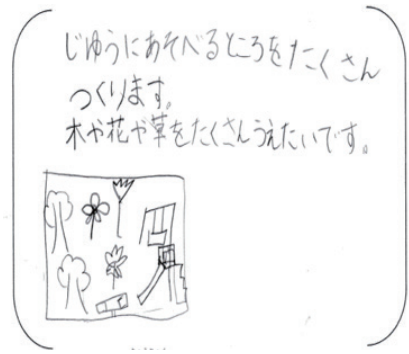 じゆうにあそべるところをたくさん
つくります。
木や花や草をたくさんうえたいです。